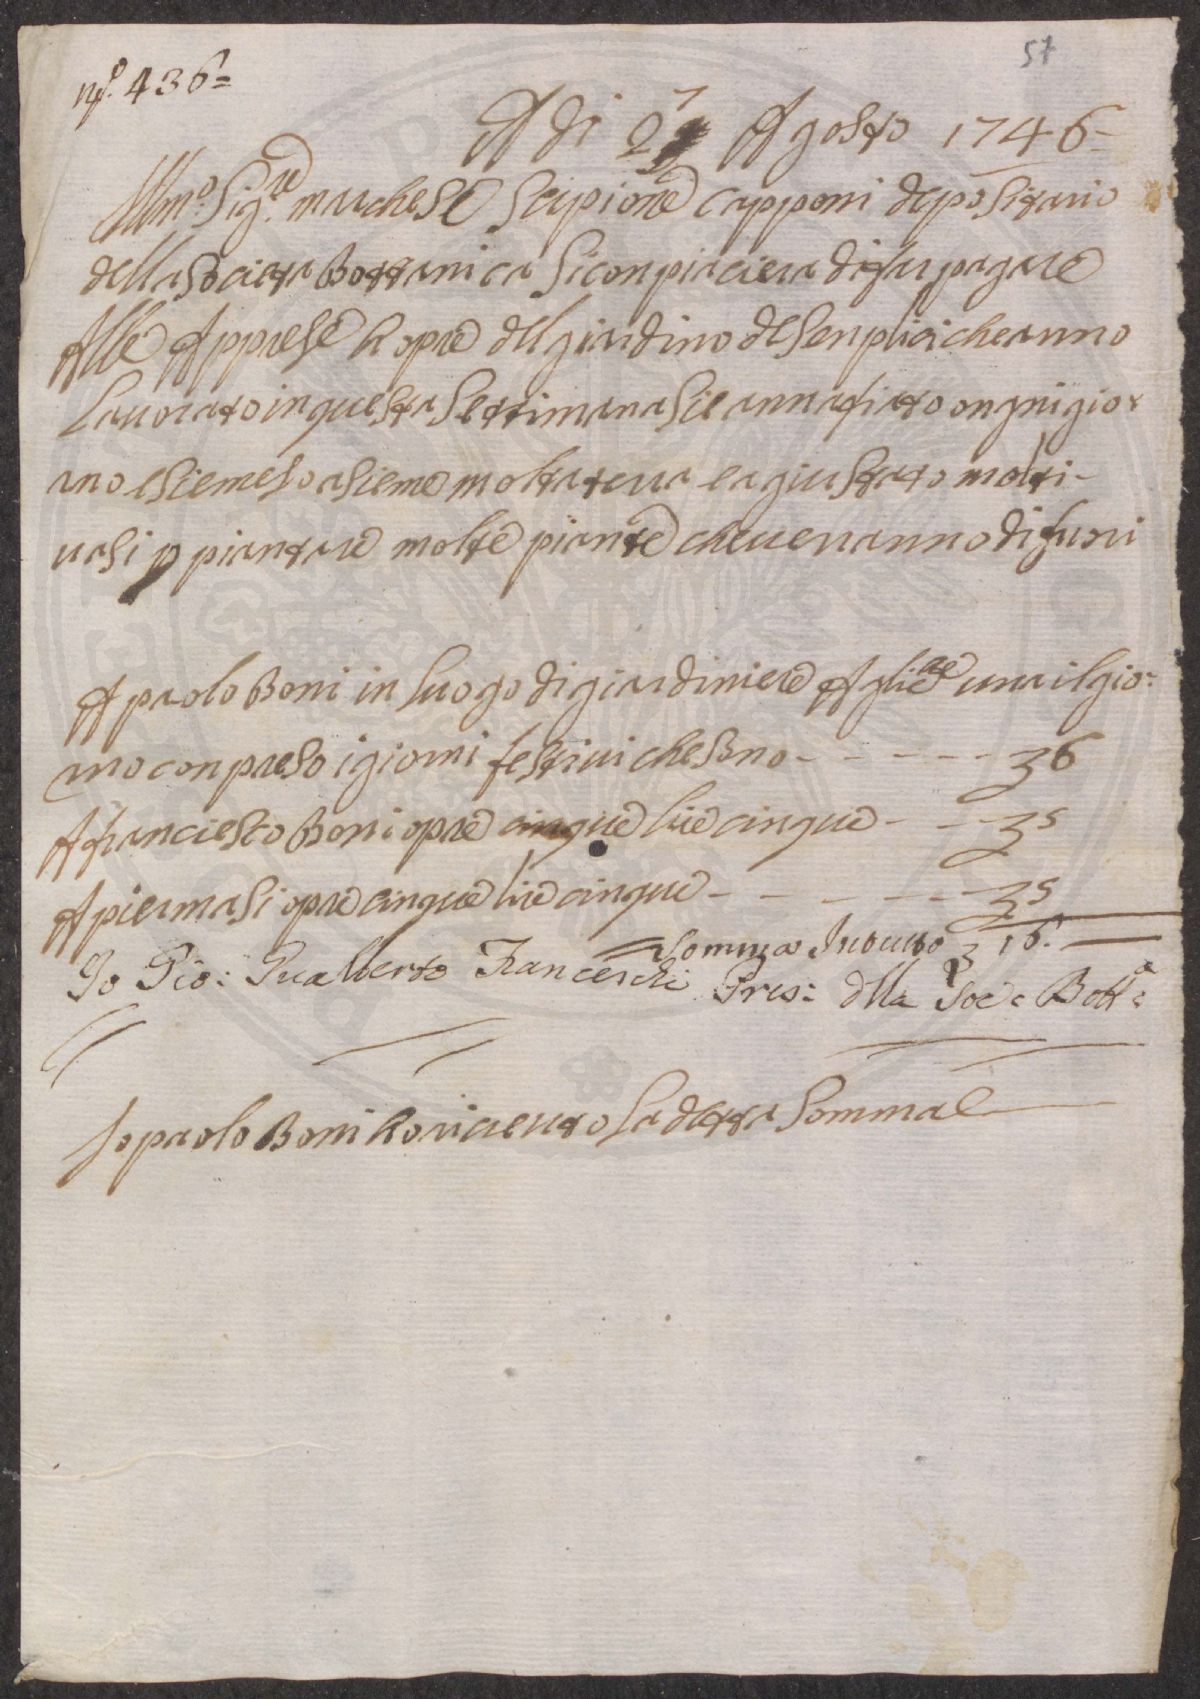 57
N.o 436=
A di 27 Agosto 1746=
Illmo. Sig.re marchese Scipione Capponi depositario
della Societa Bottanica Siconpiaciera difar pagare
Alle Apprese hopre delgiardino desenplici cheanno
Lauorato inquesta Settimana Sie annafiato ongnigior
rno esiemeso asieme molta tera eagiustato molti-
uasi p piantare molte piante cheueranno difuori
A paolo Boni in luogo digiardiniere Aglire una ilgio:
rno conpreso igiorni festiui cheSono - - - - - 36
A franciesco Boni opre cinque lire cinque - - - 35
A pier masi opre cinque lire cinque - - - - - 35
Somma In tutto 3 16. —
Io Gio: Gualberto Franceschi Pres: dlla Soc: Bott.a
Io paolo Boni ho riceuuto La detta Somma